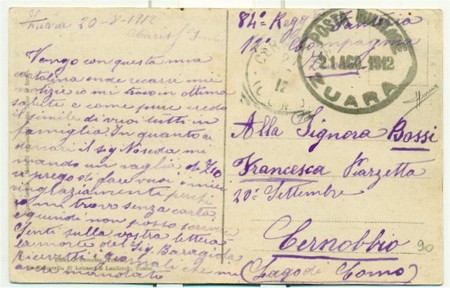 Zuara 20-8-1912
Vengo con questa mia
cartolina onde recarvi mie
notizie io mi trovo in ottima
salute e come pure credo
il simile di voi tutti in
famiglia In quanto a
denari il sig Noseda mi
mandò un vaglia di £10
vi prego di fare voi i miei
ringraziamenti perché
io mi trovo senza carta
e quindi non posso scrivere
Sento sulla vostra lettera
la morte del Sig. Baragiola
Ricevetti i giornali che mi
avete mandato
84° Regg Fanteria
12ª Compagnia
POSTA MILITARE
21 AGO. 1912
ZUARA
Alla Signora Bossi
Francesca Piazzetta
20 Settembre
Cernobbio
(Lago di Como)
90